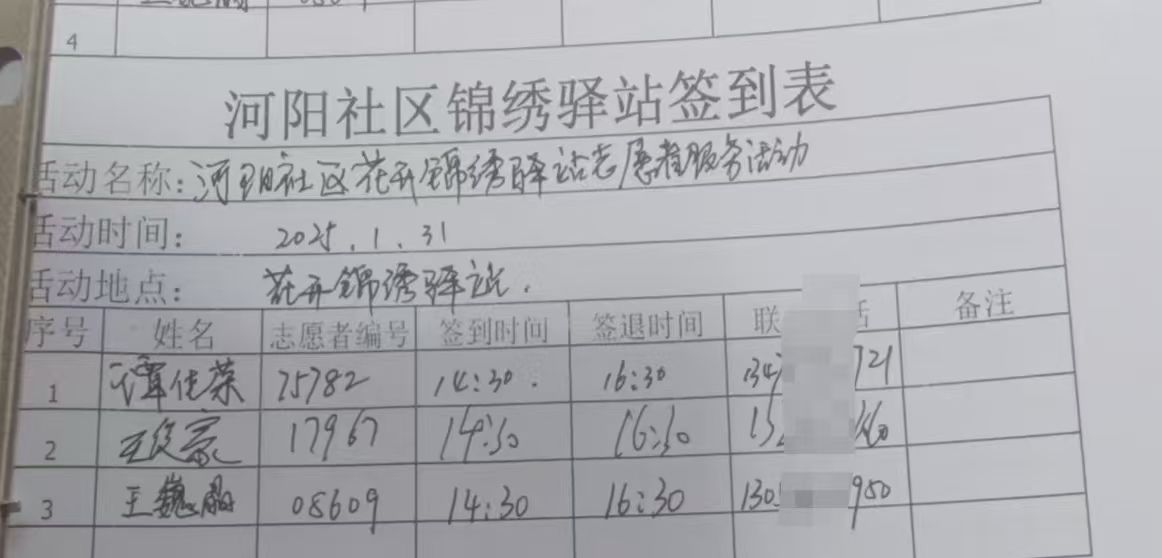 4
河阳社区锦绣驿站签到表
活动名称:河阳社区花开锦绣驿站志愿者服务活动
活动时间: 2025.1.31
活动地点: 花开锦绣驿站.
序号 姓名 志愿者编号 签到时间 签退时间 联 话 备注
1 谭佳荣 75782 14:30. 16:30 134 721
2 王 17967 14:30 16:30 15 60
3 王巍 08609 14:30 16:30 130 980